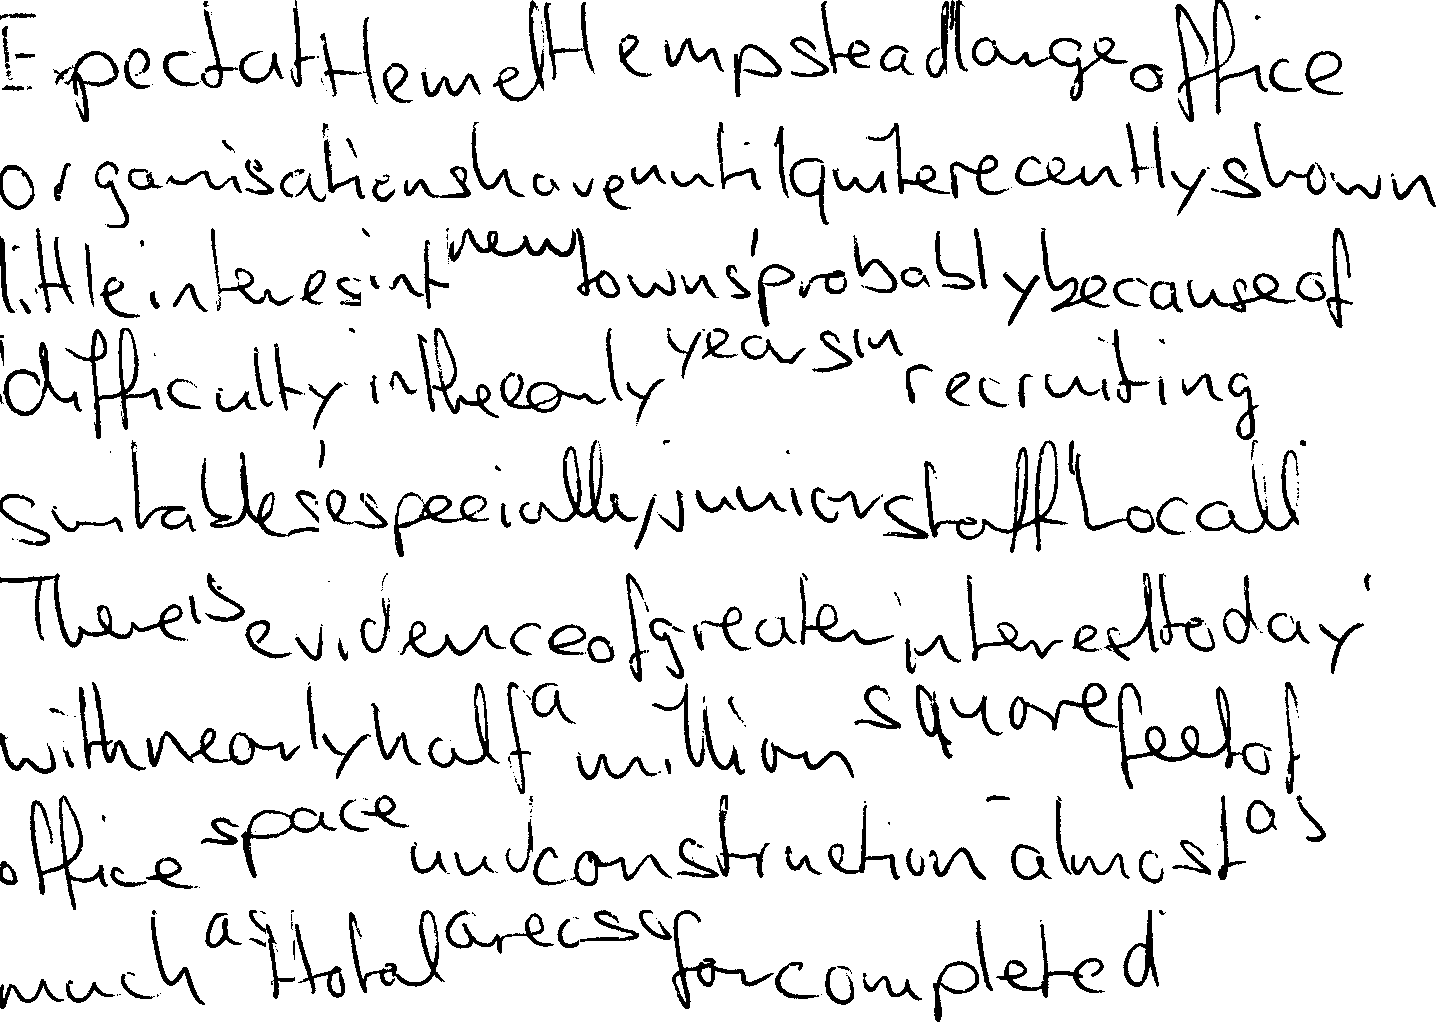 Expect at Hemel Hempstead large office
organisations have until quite recently shown
little interes in t new towns' probably because of
difficulty in the early years in recruiting
suitable's especially junior staff locall
There is evidence of greater interest today'
with nearly half a million square feet of
office space und construction almost as
much as t total area so far completed